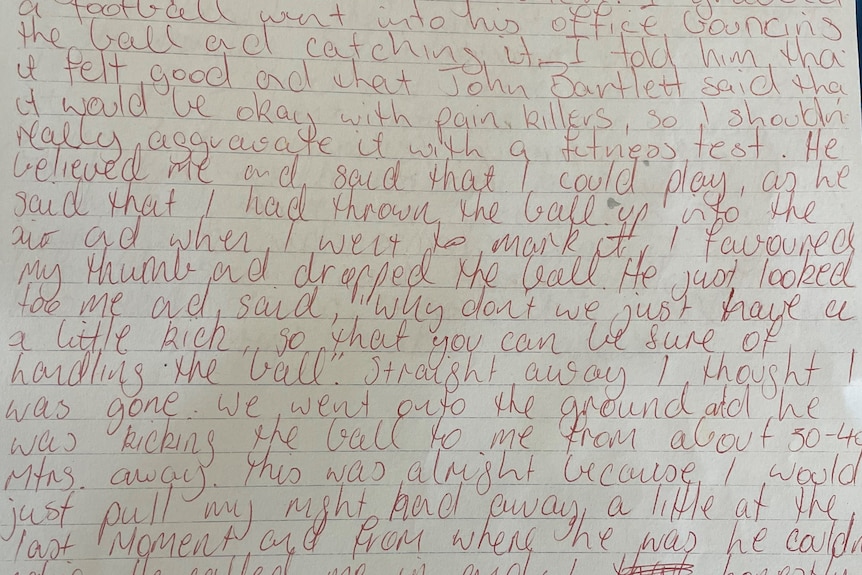 a football went into his office bouncing
the ball ad catching it. I told him tha
it felt good and that John Bartlett said tha
it would be okay with pain killers, so I shouldn
really aggravate it with a fitness test. He
believed me and said that I could play, as he
said that I had thrown the ball up into the
air ad when I went to mark it, I favoured
my thumb ad dropped the ball. He just looked
too me ad said, "Why don't we just have a
a little kick, so that you can be sure of
handling the ball". Straight away I thought I
was gone. We went onto the ground and he
was kicking the ball to me from about 30-40
Mtrs. away. This was alright because I would
just pull my right hand away a little at the
last moment and from where he was he couldn
called me in and I honestly